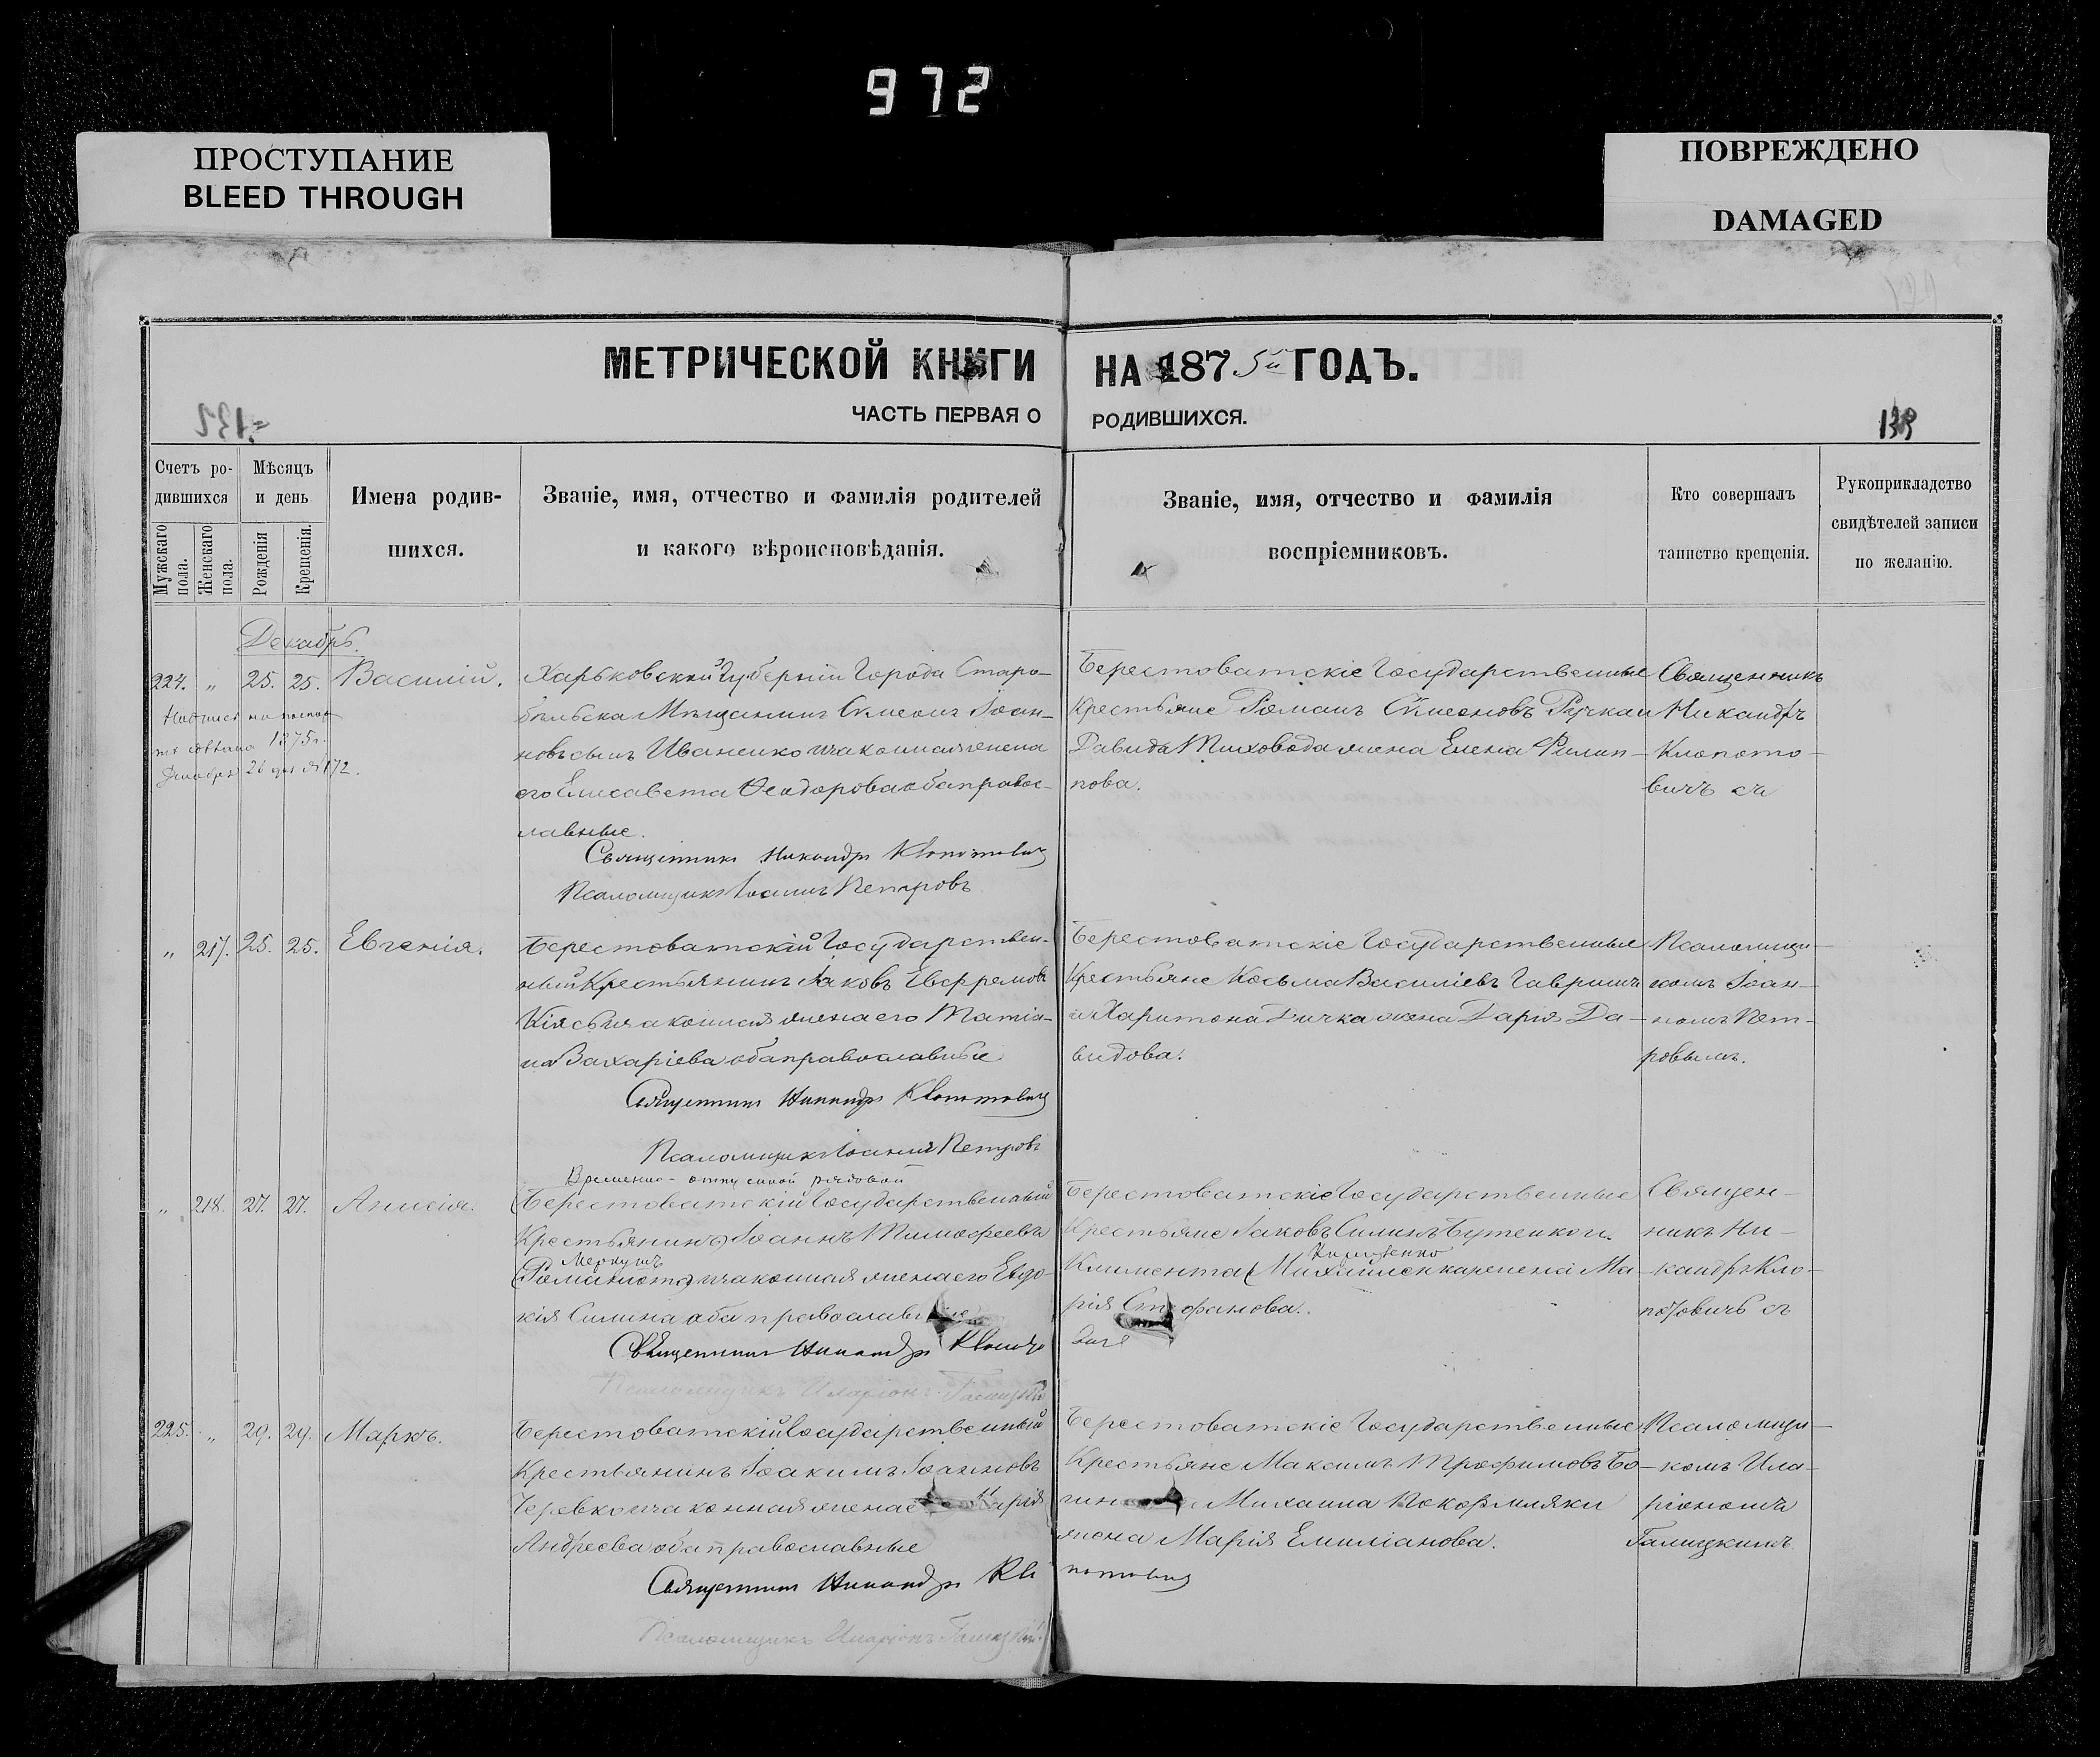 972
ПРОСТУПАНИЕ
BLEED THROUGH
ПОВРЕЖДЕНО
DAMAGED
МЕТРИЧЕСКОЙ КНИГИ НА 1875й ГОДЪ.
ЧАСТЬ ПЕРВАЯ О РОДИВШИХСЯ.
139
Счетъ ро-
дившихся
Мужскаго пола.
Женскаго пола.
Мѣсяцъ
и день
Рожденія
Крещенія.
Имена родив-
шихся.
Званіе, имя, отчество и фамилія родителей
и какого вѣроисповѣданія.
Званіе, имя, отчество и фамилія
воспріемниковъ.
Кто совершалъ
таинство крещенія.
Рукоприкладство
свидѣтелей записи
по желанію.
Декабрь.
224. „ 25. 25. Василій.
1875 г.
Декабря 26 дня № 172.
Харьковской Губерніи Города Старо-
бѣльска Мѣщанинъ Симеонъ Іоан-
новъ сынъ Иваненко и законная жена
его Елисавета Ѳеодорова оба правос-
лавные.
Священникъ Никандръ Клопотовичъ
Псаломщикъ Іоаннъ Петровъ
Берестоватскіе Государственные
Крестьяне Романъ Симеоновъ Ручка и
Давида Тиховода жена Елена Филип-
пова.
Священникъ
Никандръ
Клопото-
вичъ съ
„ 217. 25. 25. Евгенія.
Берестоватскій Государствен-
ный Крестьянинъ Іаковъ Евфремовъ
и законная жена его Татіа-
на Захаріева оба православные
Священникъ Никандръ Клопотовичъ
Псаломщикъ Іоаннъ Петровъ
Берестоватскіе Государственные
Крестьяне Косьма Василіевъ Гавришъ
и Харитона жена Дарія Да-
видова.
Псаломщи-
комъ Іоан-
номъ Пет-
ровымъ.
„ 218. 27. 27. Анисія.
Временно-отпускной рядовой
Берестоватскій Государственный
Крестьянинъ Іоаннъ Тимофеевъ
и законная жена его Евдо-
кія Силина оба православные
Священникъ Никандръ Клопо
Псаломщикъ Иларіонъ Галицкій
Берестоватскіе Государственные
Крестьяне Іаковъ Силинъ Бутенко и
Климента жена Ма-
рія Стефанова.
Священ-
никъ Ни-
кандръ Кло-
потовичъ съ
225. „ 29. 29. Маркъ.
Берестоватскій Государственный
Крестьянинъ Іоакимъ Іоанновъ
Черевко и законная жена его Марія
Андреева оба православные
Священникъ Никандръ Клопотовичъ
Псаломщикъ Иларіонъ Галицкій
Берестоватскіе Государственные
Крестьяне Максимъ Трофимовъ Бо-
Михаила Покормляки
жена Марія Емиліанова.
Псаломщи-
комъ Ила-
ріономъ
Галицкимъ.